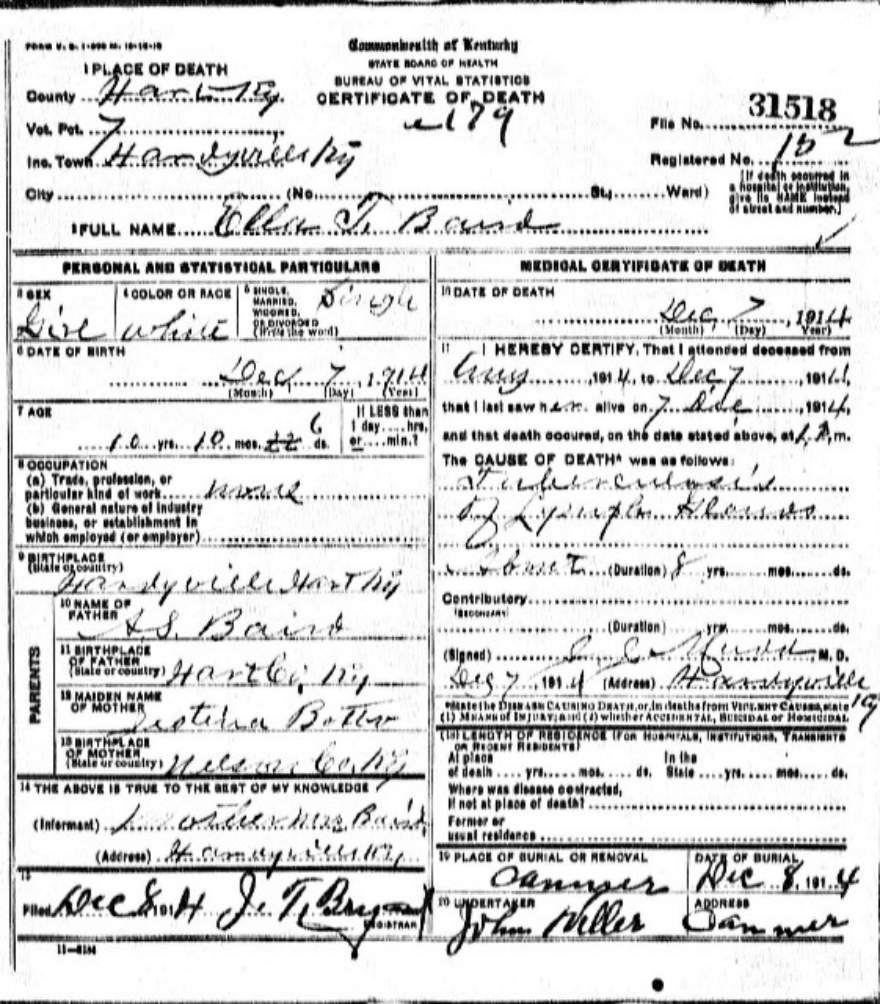 FORM V. S. 1-
Commonwealth of Kentucky
STATE BOARD OF HEALTH
BUREAU OF VITAL STATISTICS
CERTIFICATE OF DEATH
1 PLACE OF DEATH
County Hart Ky
179
Vot. Pct. 7
File No. 31518
Inc. Town Hardyville Ky
Registered No.
City (No. St., Ward)
[If death occurred in a hospital or institution, give its NAME instead of street and number.]
2 FULL NAME Ella T. Baird
PERSONAL AND STATISTICAL PARTICULARS
3 SEX Girl
4 COLOR OR RACE White
5 SINGLE, MARRIED, WIDOWED, OR DIVORCED (Write the word) Single
6 DATE OF BIRTH
Dec 7, 1914
(Month) (Day) (Year)
7 AGE
10 yrs. 10 mos. 6 ds.
If LESS than 1 day....hrs, or....min.?
8 OCCUPATION
(a) Trade, profession, or
particular kind of work none
(b) General nature of industry
business, or establishment in
which employed (or employer)
9 BIRTHPLACE
(State or country)
Hardyville Hart Ky
PARENTS
10 NAME OF FATHER
AS. Baird
11 BIRTHPLACE OF FATHER
(State or country) Hart Co, Ky
12 MAIDEN NAME OF MOTHER
13 BIRTHPLACE OF MOTHER
(State or country) Nelson Co. Ky
14 THE ABOVE IS TRUE TO THE BEST OF MY KNOWLEDGE
(Informant) Mother Mrs Baird
(Address) Hardyville Ky
15
Filed Dec 8 1914 J. T. Bryant
REGISTRAR
11-
MEDICAL CERTIFICATE OF DEATH
16 DATE OF DEATH
Dec 7, 1914
(Month) (Day) (Year)
17 I HEREBY CERTIFY, That I attended deceased from
Aug, 1914, to Dec 7, 1914,
that I last saw her alive on 7 Dec, 1914,
and that death occured, on the date stated above, at m.
The CAUSE OF DEATH* was as follows:
Tuberculosis
Of Lymph Glands
About (Duration) 8 yrs. mos. ds.
Contributory
(SECONDARY)
(Duration) yrs. mos. ds.
(Signed) M. D.
Dec 7, 1914 (Address) Hardyville Ky
*State the DISEASE CAUSING DEATH, or, in deaths from VIOLENT CAUSES, state
(1) MEANS OF INJURY; and (2) whether ACCIDENTAL, SUICIDAL or HOMICIDAL
(18) LENGTH OF RESIDENCE (FOR HOSPITALS, INSTITUTIONS, TRANSIENTS
OR RECENT RESIDENTS)
At place of death yrs. mos. ds. In the State yrs. mos. ds.
Where was disease contracted,
If not at place of death?
Former or
usual residence
19 PLACE OF BURIAL OR REMOVAL
Canmer
DATE OF BURIAL
Dec 8, 1914
20 UNDERTAKER
John Willer
ADDRESS
Canmer